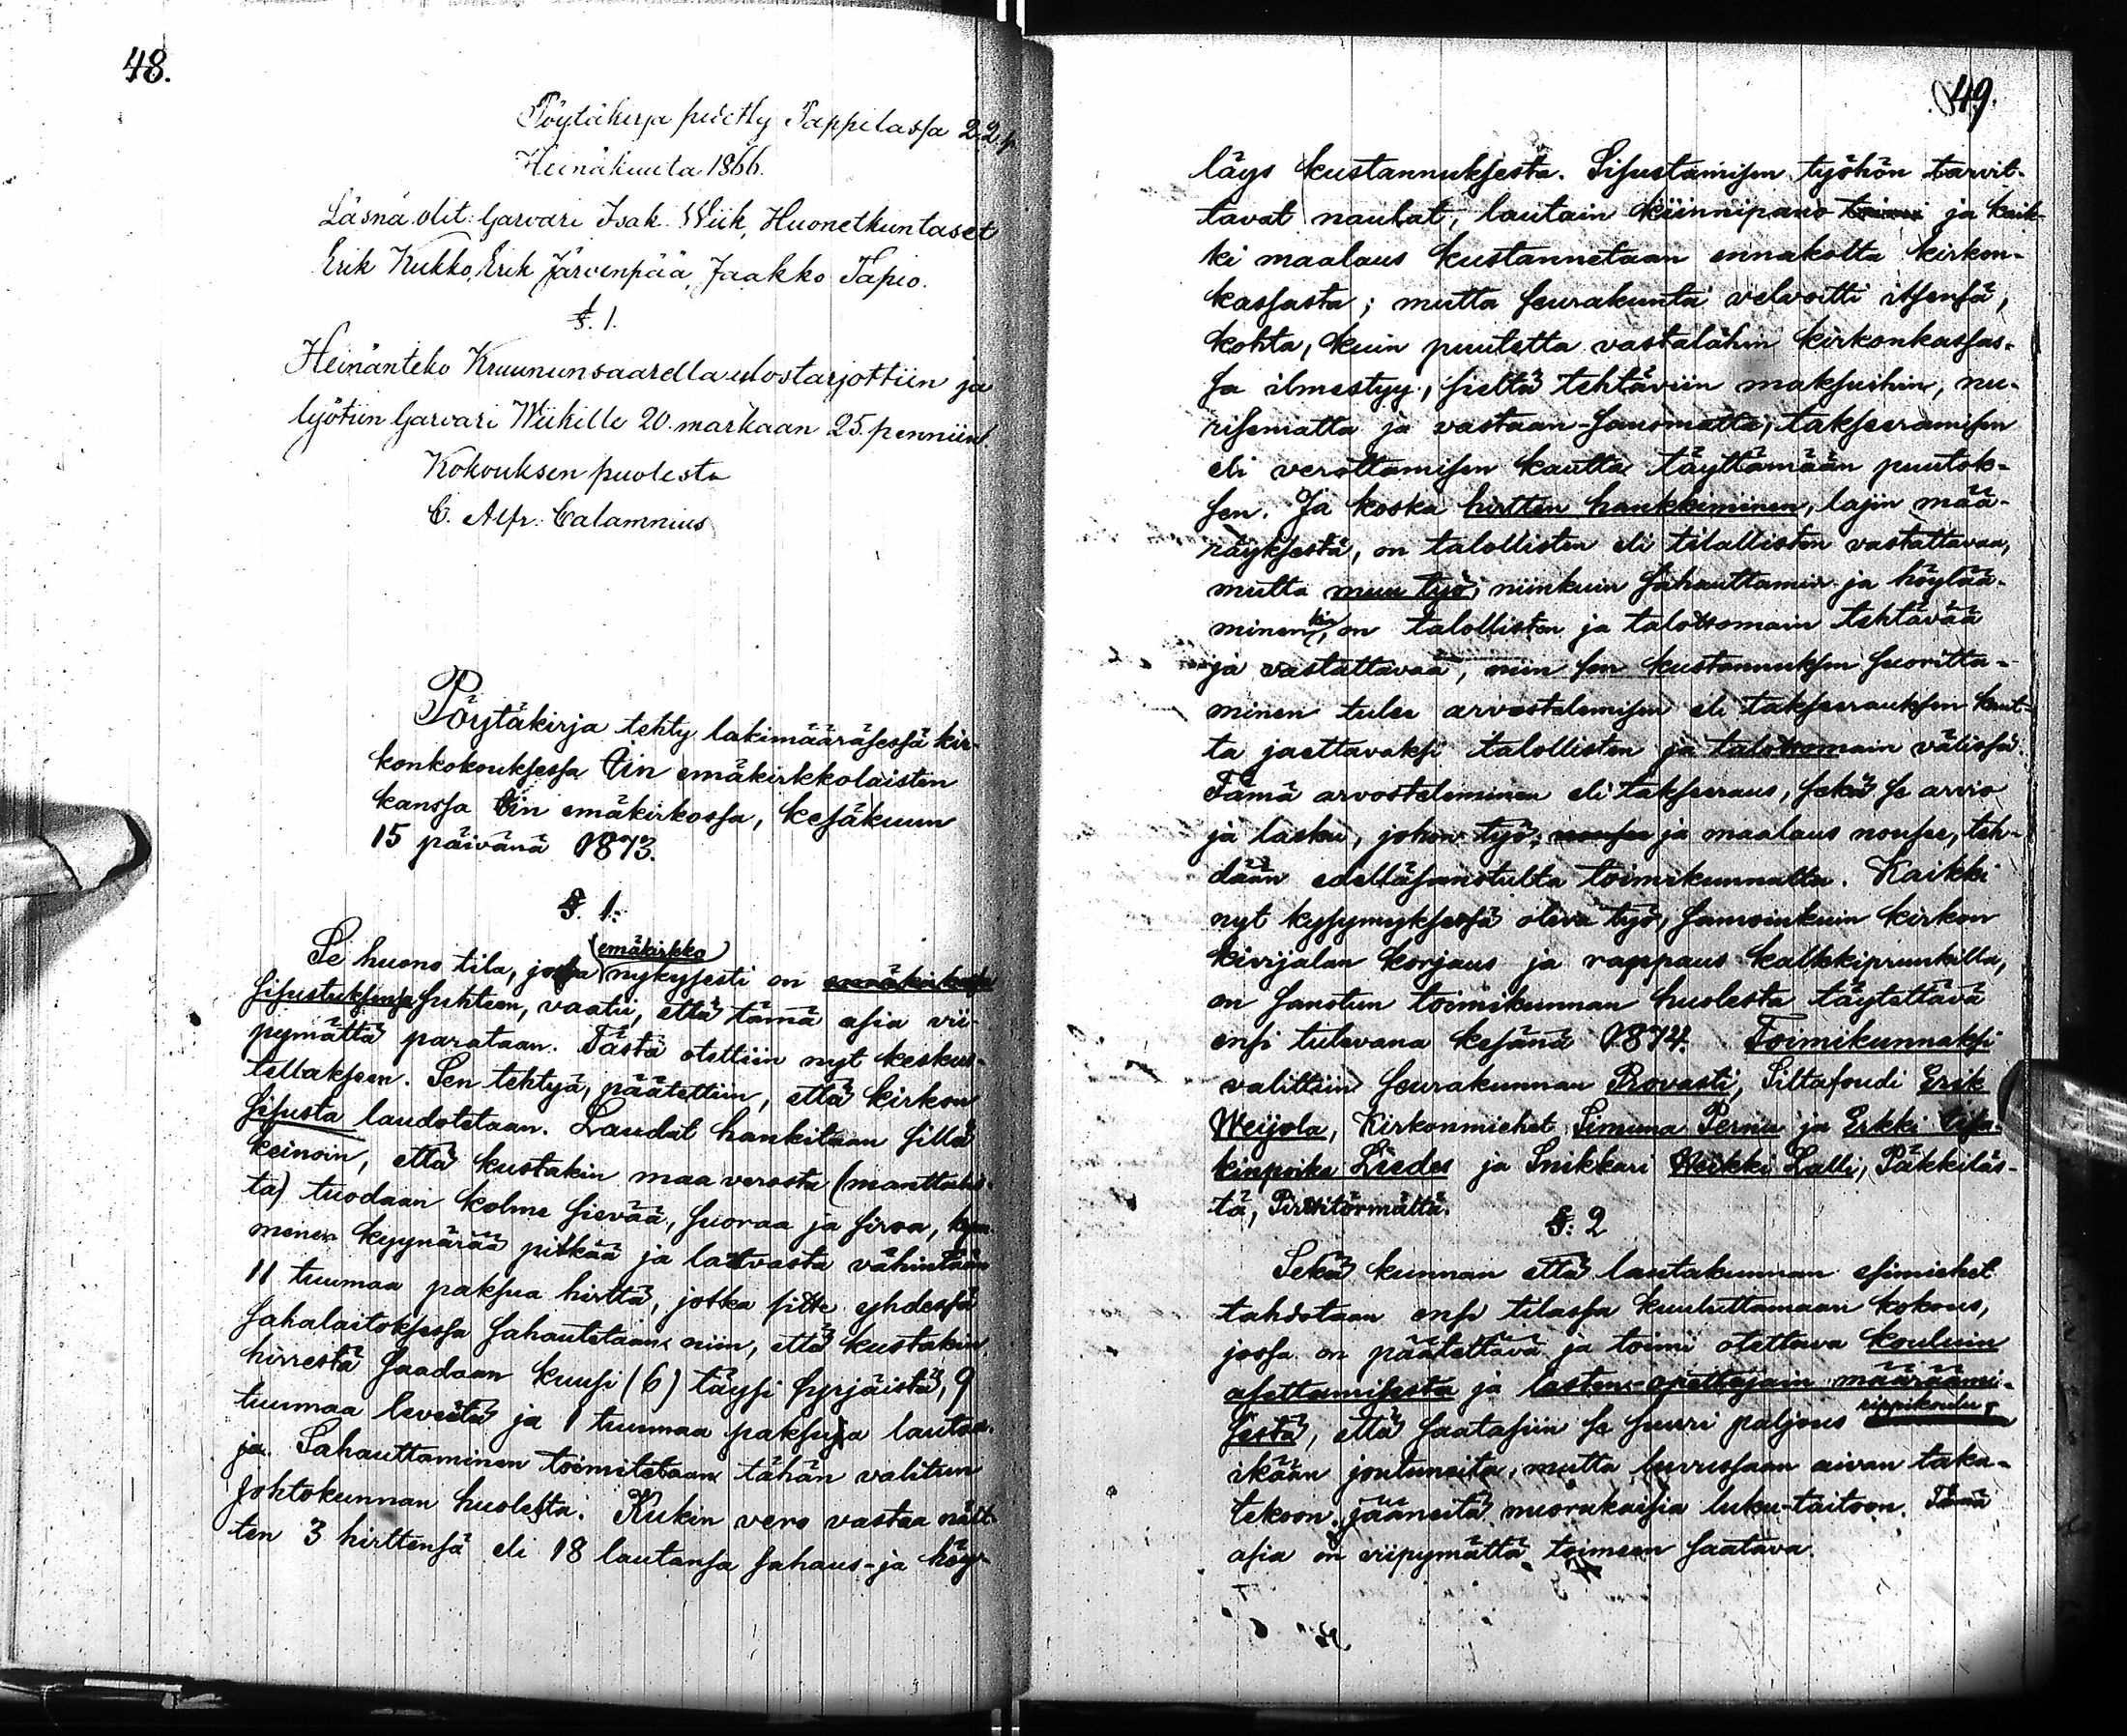 48.
Pöytäkirja pidetty Pappilassa 22. p
Heinäkuuta 1866.
Läsnä olit: Garvari Isak Wiik, Huonetkuntaset
Erik Kukko, Erik Järvenpää, Jaakko Tapio.
§. 1.
Heinänteko Kruununsaarella ulostarjottiin ja
lyötiin Garvari Wiikille 20 markaan 25 penniin.
Kokouksen puolesta
C. Alfr. Calamnius
Pöytäkirja tehty lakimääräsessä kir-
konkokouksessa Iin emäkirkkolaisten
kanssa Iin emäkirkossa, kesäkuun
15 päivänä 1873.
§. 1.
emäkirkko
Se huono tila, jossa nykysesti on
sisustuksensa suhteen, vaatii, että tämä asia vii-
pymättä parataan. Tästä otettiin nyt keskus-
tellakseen. Sen tehtyä, päätettiin, että kirkon
sisusta laudotetaan. Laudat hankitaan sillä
keinoin, että kustakin maa verosta (manttalis-
ta) tuodaan kolme sievää, suoraa ja siroa, kym-
menen kyynärää pitkää ja latvasta vähintään
11 tuumaa paksua hirttä, jotka sitte yhdessä
sahalaitoksessa sahautetaan niin, että kustakin
hirrestä saadaan kuusi (6) täysi syrjäistä, 9
tuumaa leveitä ja 1 tuumaa paksuja lautoa-
ja. Sahauttaminen toimitetaan tähän valitun
Johtokunnan huolesta. Kukin vero vastaa nält-
ten 3 hirttensä eli 18 lautansa sahaus- ja höy-
49.
läys kustannuksesta. Sisustamisen työhön tarvit-
tavat naulat, lautain kiinnipano toimi ja kaik-
ki maalaus kustannetaan ennakolta kirkon-
kassasta; mutta seurakunta velvoitti itsensä,
kohta, kuin puutetta vastalähin kirkonkassas-
sa ilmestyy, sieltä tehtäviin maksuihin, nu-
risematta ja vastaan-sanomatta, takseeramisen
eli verottamisen kautta täyttämään puutok-
sen. Ja koska hirtten hankkiminen, lajin mää-
räyksestä, on talollisten eli tilallisten vastattavaa,
mutta muu työ, niinkuin sahauttamin- ja höylää-
minenkin, on talollisten ja talottomain tehtävää
ja vastattavaa, niin sen kustannuksen suoritta-
minen tulee arvostelemisen eli takseerauksen kaut-
ta jaettavaksi talollisten ja talottomain välissä.
Tämä arvosteleminen eli takseeraus, sekä se arvio
ja lasku, johon työ, nousee ja maalaus nousee, teh-
dään edelläsanotulta toimikunnalta. Kaikki
nyt kysymyksessä oleva työ, samoinkuin kirkon
kivijalan korjaus ja rappaus kalkkipruukilla,
on sanotun toimikunnan huolesta täytettävä
ensi tulevana kesänä 1874. Toimikunnaksi
valittiin seurakunnan Provasti, Siltafoudi Erik
Weijola, Kirkonmiehet Simuna Pernu ja Erkki Iisa-
kinpoika Liedes ja Snikkari Heikki Lalli, Päkkiläs-
tä, Pirttitörmältä.
§. 2
Sekä kunnan että lautakunnan esimiehet
tahdotaan ensi tilassa kuuluttamaan kokous,
jossa on päätettävä ja toimi otettava kouluin
asettamisesta ja lasten-opettajain määräämi-
sestä, että saatasiin se suuri paljous rippikoulu-
ikään joutuneita, mutta luvussaan aivan taka-
tekoon jääneitä nuorukaisia luku-taitoon. Tämä
asia on viipymättä toimeen saatava.